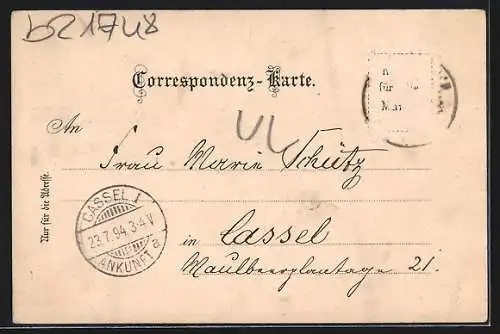 b21748
Correspondenz-Karte.
für
Mar
An
Frau Marie Schütz
Nur für die Adresse.
CASSEL 1
23.7.94.3-4 V
ANKUNFT a
in Cassel
Maulbeerplantage 21.